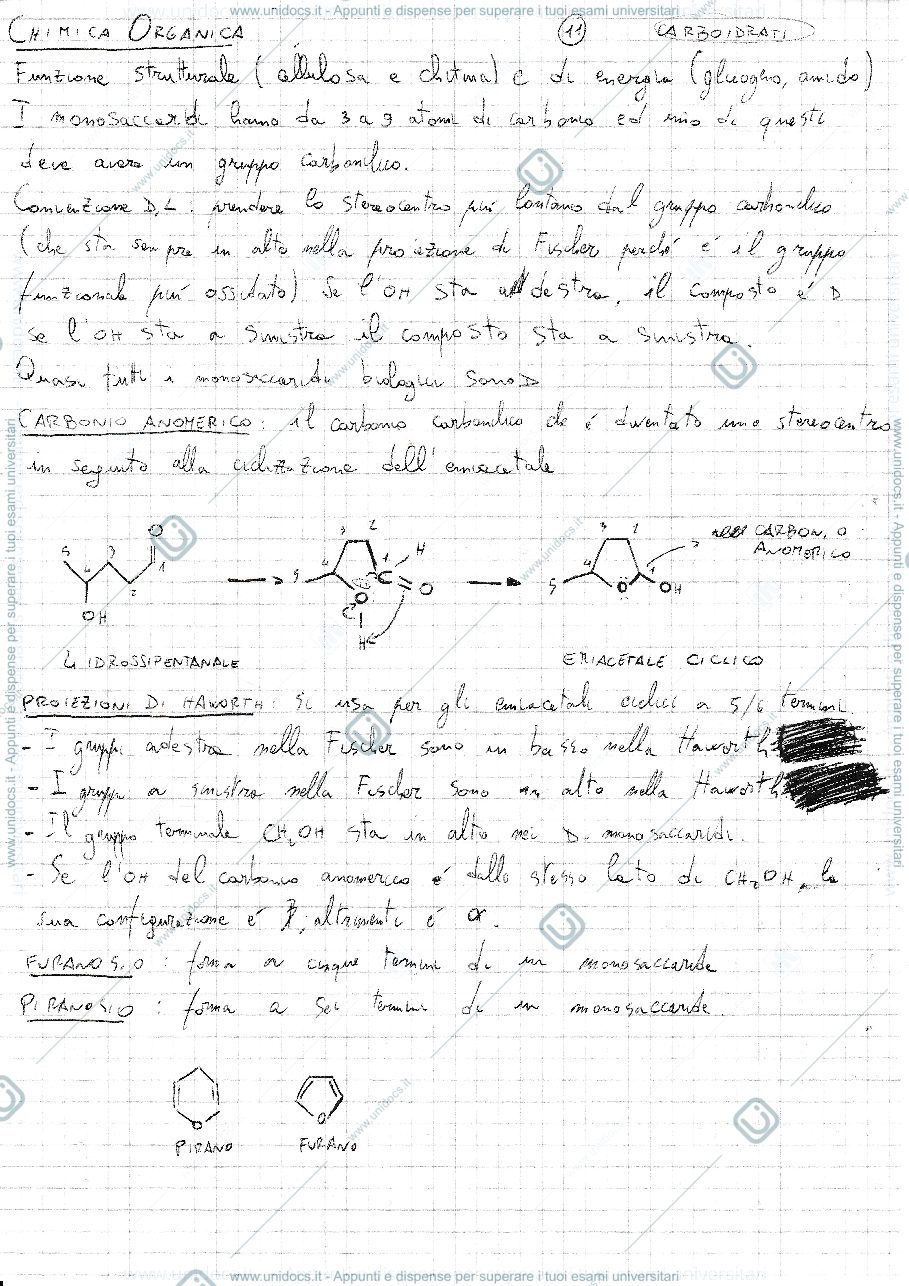 www.unidocs.it - Appunti e dispense per superare i tuoi esami universitari
CHIMICA ORGANICA 11 CARBOIDRATI
Funzione strutturale (cellulosa e chitina) e di energia (glicogeno, amido)
I monosaccaridi hanno da 3 a 9 atomi di carbonio ed uno di questi
deve avere un gruppo carbonilico.
Convenzione D, L : prendere lo stereocentro più lontano dal gruppo carbonilico
(che sta sempre in alto nella proiezione di Fischer perché è il gruppo
funzionale più ossidato) Se l'OH sta a destra, il composto é D
se l'OH sta a sinistra il composto sta a sinistra.
Quasi tutti i monosaccaridi biologici sono D
CARBONIO ANOMERICO : il carbonio carbonilico che é diventato uno stereocentro
in seguito alla ciclizzazione dell'emiacetale
5 4 3 2 1 O OH
5 4 3 2 1 C H O O H
5 4 3 2 1 O OH CARBONIO
ANOMERICO
4 IDROSSIPENTANALE EMIACETALE CICLICO
PROIEZIONI DI HAWORTH : si usa per gli emiacetali ciclici a 5/6 termini
- I gruppi a destra nella Fischer sono in basso nella Haworth
- I gruppi a sinistra nella Fischer sono in alto nella Haworth
- Il gruppo terminale CH2OH sta in alto nei D-monosaccaridi.
- Se l'OH del carbonio anomerico é dallo stesso lato di CH2OH, la
sua configurazione é β, altrimenti é α.
FURANOSIO : forma a cinque termini di un monosaccaride
PIRANOSIO : forma a sei termini di un monosaccaride.
O O
PIRANO FURANO
www.unidocs.it - Appunti e dispense per superare i tuoi esami universitari